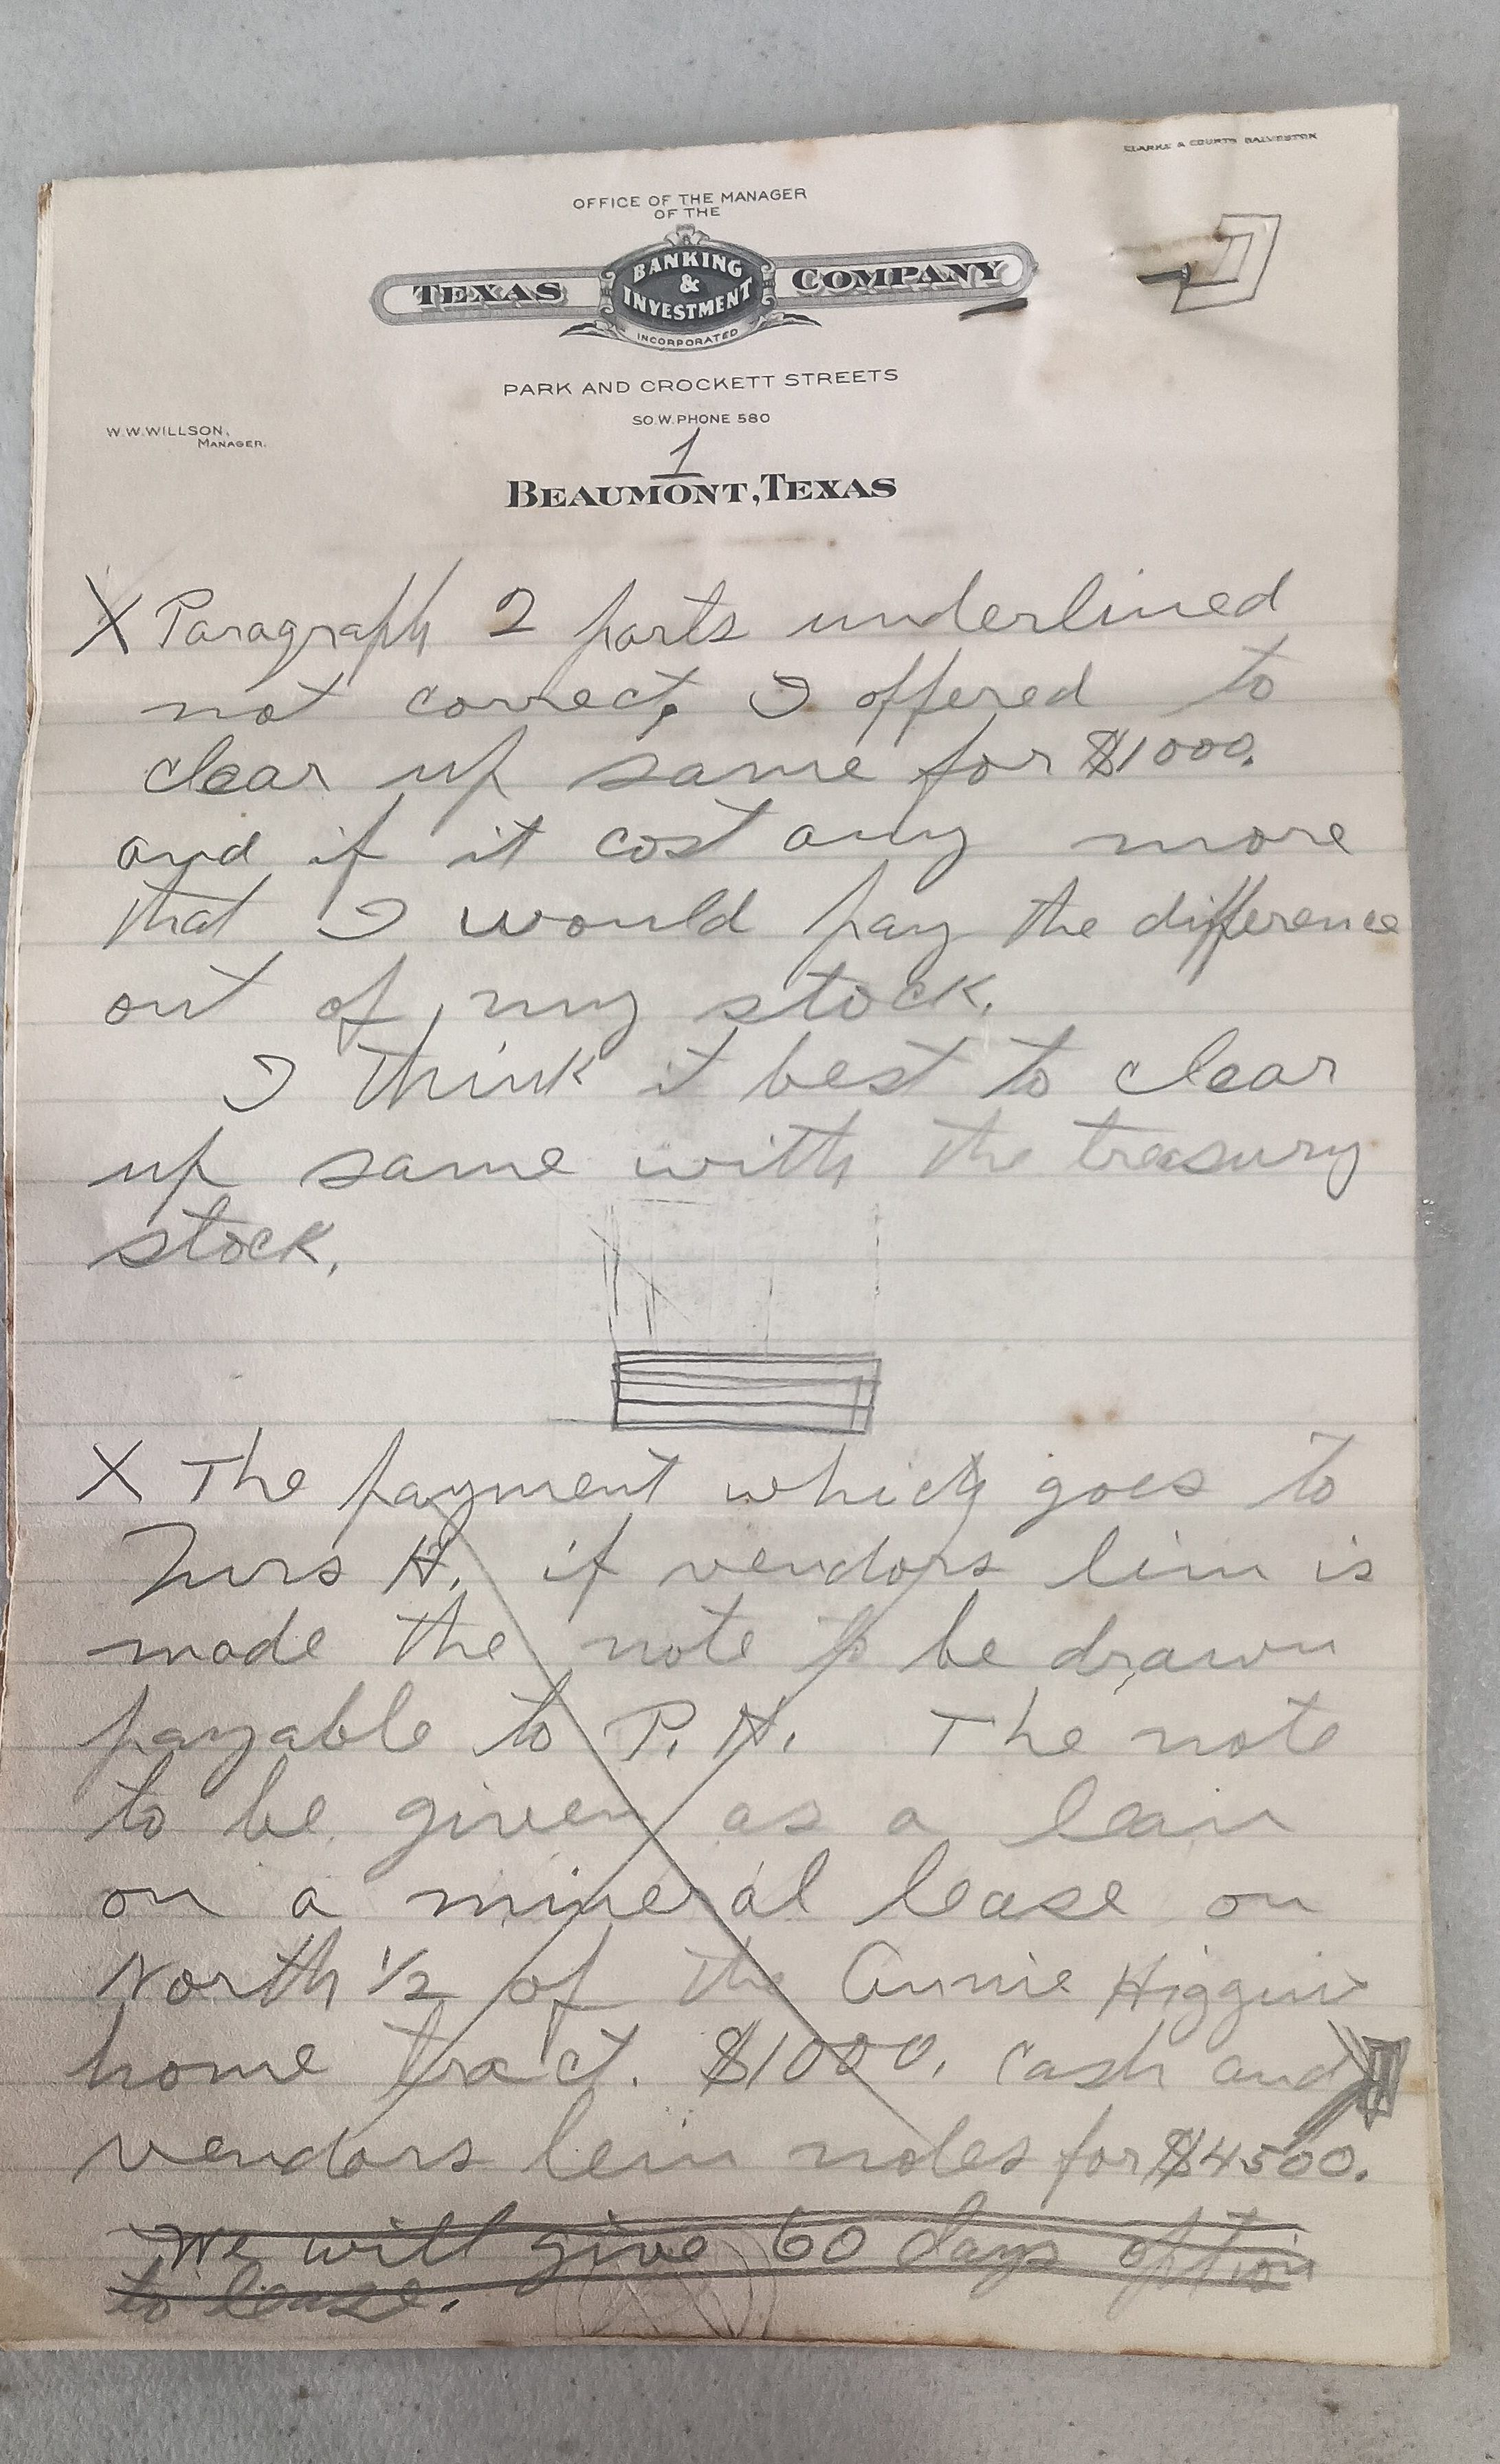 CLARKE & COURTS GALVESTON
OFFICE OF THE MANAGER
OF THE
TEXAS BANKING & INVESTMENT COMPANY
INCORPORATED
PARK AND CROCKETT STREETS
SO.W.PHONE 580
W.W.WILLSON,
MANAGER.
1
BEAUMONT, TEXAS
X Paragraph 2 parts underlined
not correct, I offered to
clear up same for $1000.
and if it cost any more
that I would pay the difference
out of my stock.
I think it best to clear
up same with the treasury
stock.
X The payment which goes to
Mrs H. if vendors lein is
made the note to be drawn
payable to P. H. The note
to be given as a lean
on a mineral lease on
North 1/2 of the Annie Higgins
home tract. $1000. cash and
vendors lein notes for $4500.
We will give 60 days option
to lease.